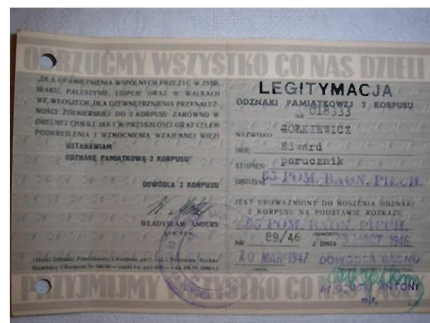 ODRZUĆMY WSZYSTKO CO NAS DZIELI
„DLA UPAMIĘTNIENIA WSPÓLNYCH PRZEŻYĆ W ZSRR,
IRAKU, PALESTYNIE, EGIPCIE ORAZ W WALKACH
WE WŁOSZECH, DLA UZEWNĘTRZNIENIA PRZYNALEŻ-
NOŚCI ŻOŁNIERSKIEJ DO 2 KORPUSU ZARÓWNO W
OBECNEJ CHWILI JAK I W PRZYSZŁOŚCI ORAZ CELEM
PODKREŚLENIA I WZMOCNIENIA WZAJEMNEJ WIĘZI
USTANAWIAM
ODZNAKĘ PAMIĄTKOWĄ 2 KORPUSU"
DOWÓDCA 2 KORPUSU
WŁADYSŁAW ANDERS
LEGITYMACJA
ODZNAKI PAMIĄTKOWEJ 2. KORPUSU
NR 018333
NAZWISKO ŻOŁKIEWICZ
IMIĘ Edward
STOPIEŃ porucznik
ODDZIAŁ 65 POM. BAON. PIECH.
JEST UPOWAŻNIONY DO NOSZENIA ODZNAKI
2 KORPUSU NA PODSTAWIE ROZKAZU
65 POM. BAON. PIECH.
NR 89/46 Z DNIA 1946
10 MAR 1947 DOWÓDCA BAONU
ANTONI
mjr.
PRZYJMIJMY WSZYSTKO CO NAS ŁĄCZY